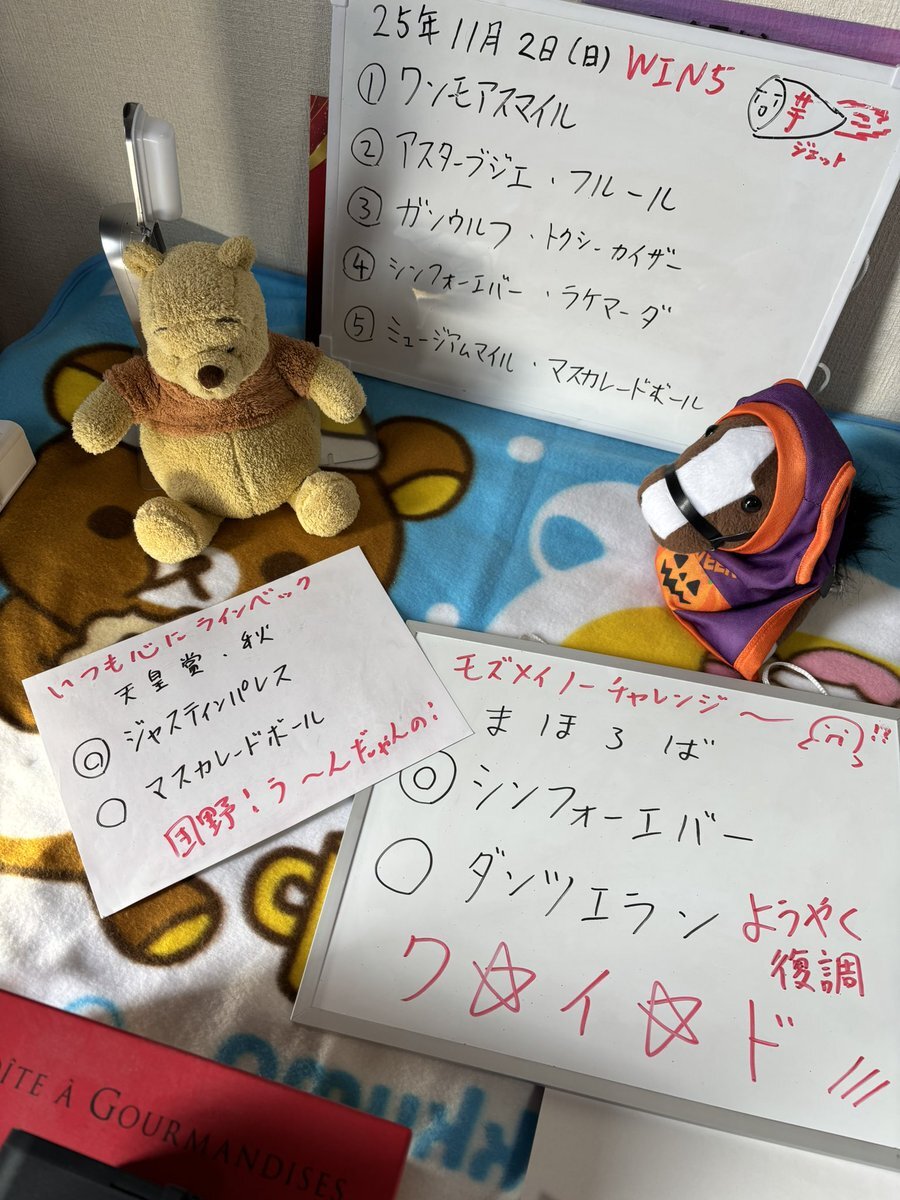 25年11月2日(日) WIN5
① ワンモアスマイル
芋
ジェット
② アスターブジエ・フルール
③ ガンウルフ・トクシーカイザー
④ シンフォーエバー・ラケマーダ
⑤ ミュージアムマイル・マスカレードボール
いつも心にラインベック
天皇賞・秋
◎ ジャスティンパレス
○ マスカレードボール
国野!う〜んだゃんの!
モズメイノーチャレンジ〜
まほろば
!?
◎ シンフォーエバー
○ ダンツエラン
ようやく
復調
ワ☆イ☆ド
OÎTE À GOURMANDISES